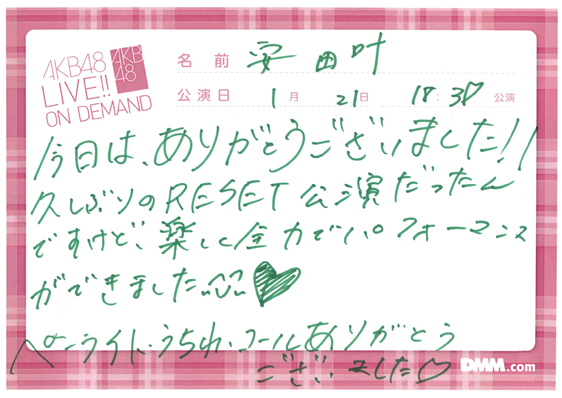 AKB48
LIVE!!
ON DEMAND
AKB
48
名前 安田叶
公演日 1月 21日 18:30 公演
今日は、ありがとうございました!!
久しぶりのRESET公演だったん
ですけど、楽しく全力でパフォーマンス
ができました♡
ペンライト・うちわ・コールありがとう
ございました♡
DMM.com